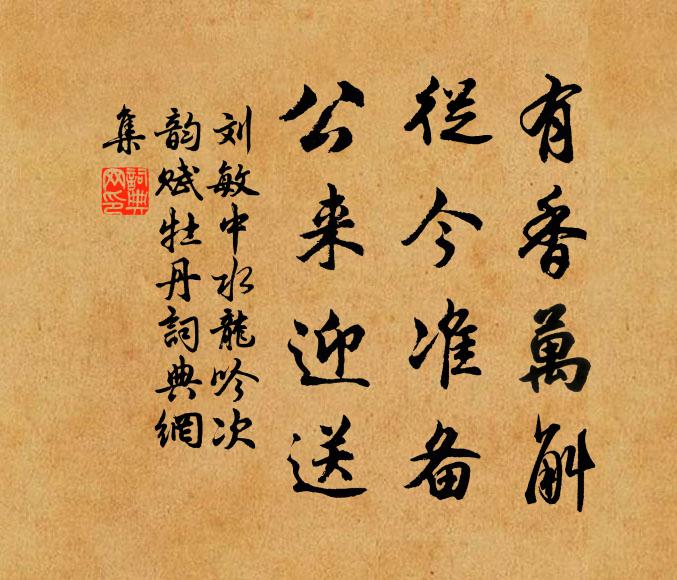 有香萬斛
從今准备
公来迎送
刘敏中水龍吟次
韵赋牡丹詞典網
集
詞典
网印